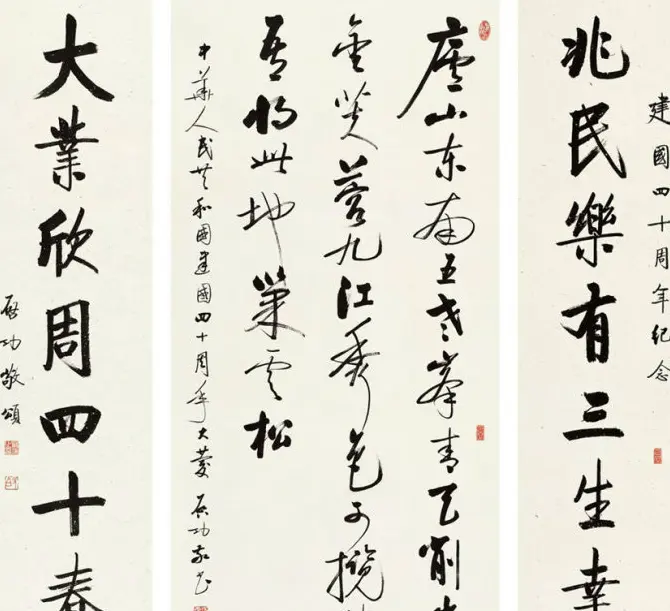 建國四十周年紀念
兆民樂有三生幸
廬山東南五老峯青天削
金芙蓉九江秀色可攬
吾將此地巢雲松
中華人民共和國建國四十周年大慶 启功敬書
大業欣周四十春
启功敬頌